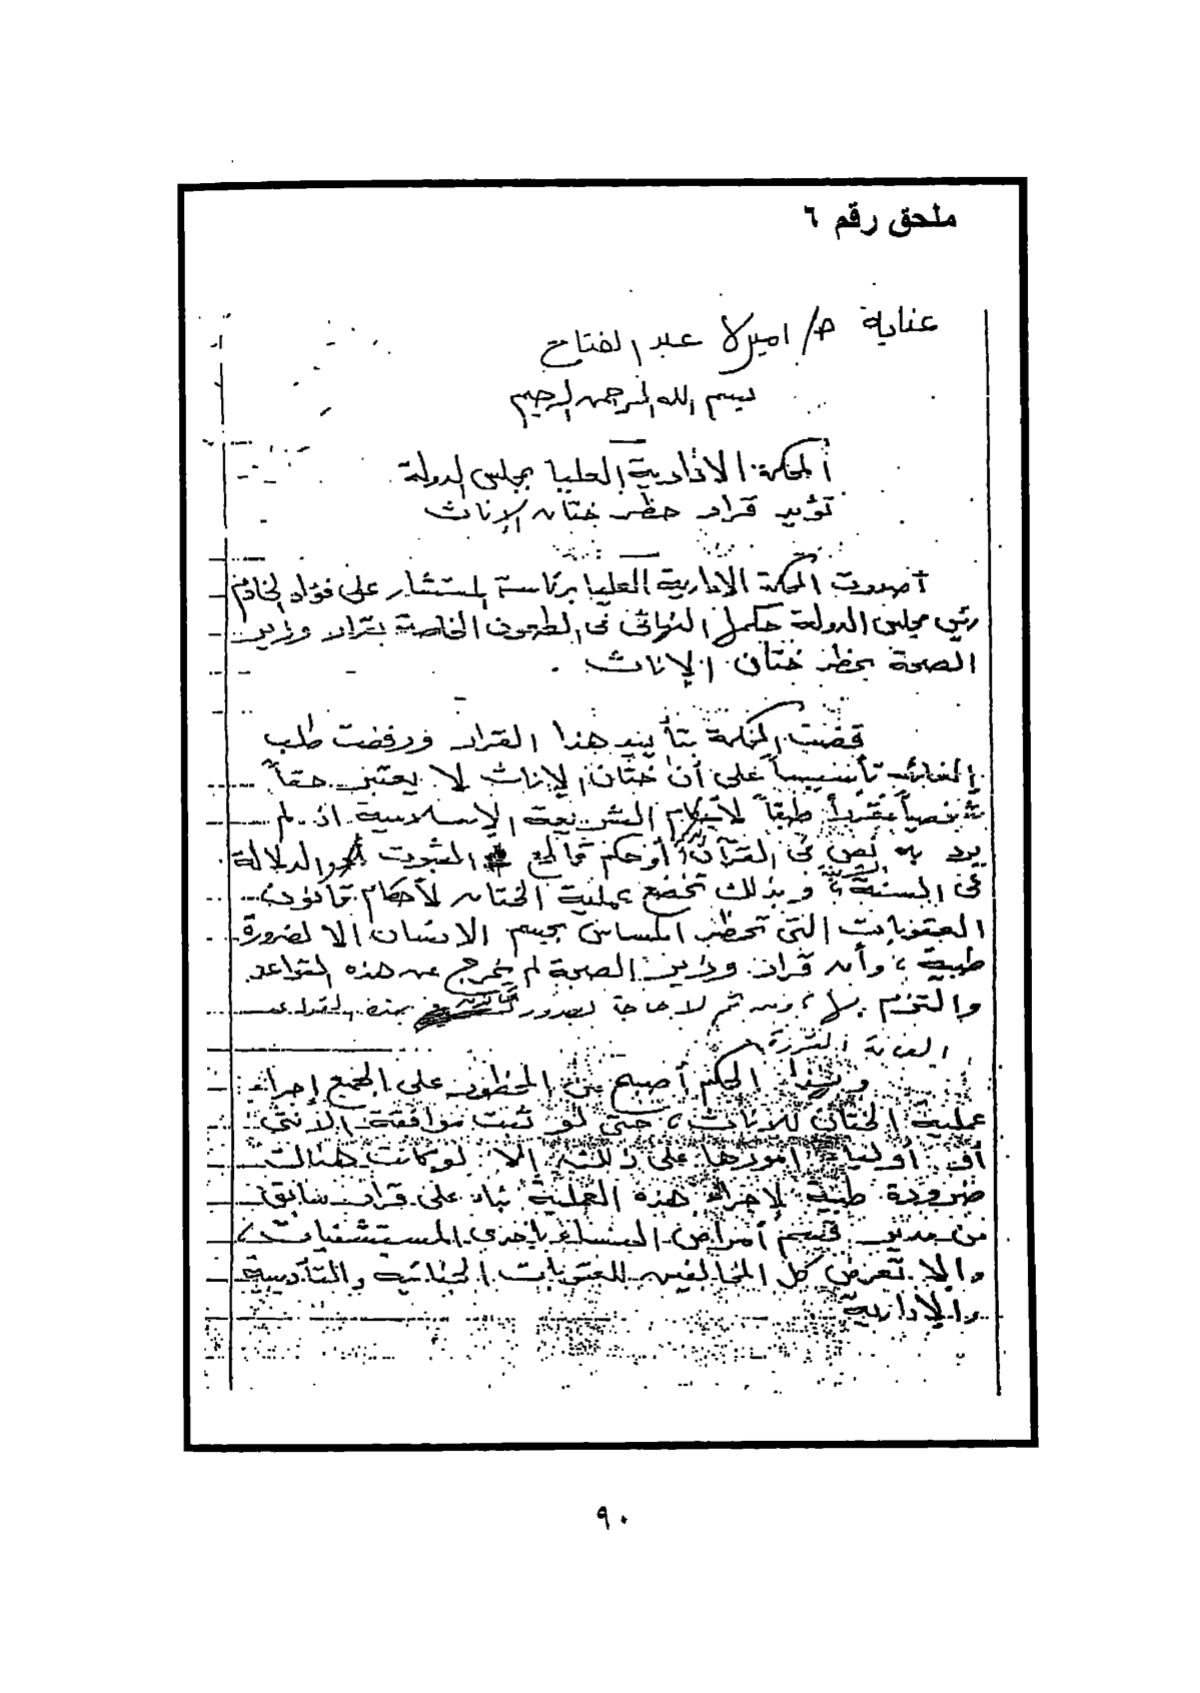 ملحق رقم ٦
عناية د/ اميرة عبد الفتاح
بسم الله الرحمن الرحيم
المحكمة الادارية العليا بمجلس الدولة
تؤيد قرار حظر ختان الإناث
أصدرت المحكمة الادارية العليا برئاسة المستشار على فؤاد الخادم
رئيس مجلس الدولة حكمها النهائى فى الطعون الخاصة بقرار وزير
الصحة بحظر ختان الإناث .
قضت المحكمة بتأييد هذا القرار ورفضت طلب
إلغائه تأسيساً على أن ختان الإناث لا يعتبر حقاً
شخصياً مقرراً طبقاً لأحكام الشريعة الإسلامية اذ لم
يرد به نص فى القرآن أو حكم قاطع الثبوت والدلالة
فى السنة ، وبذلك تخضع عملية الختان لأحكام قانون
العقوبات التى تحظر المساس بجسم الانسان الا لضرورة
طبية ، وأن قرار وزير الصحة لم يخرج عن هذه القواعد
والتزم بها ، ومن ثم لا حاجة لصدور بهذه القواعد
العامة المقررة
وبهذا الحكم أصبح من المحظور على الجميع إجراء
عملية الختان للاناث ، حتى لو ثبت موافقة الانثى
أو أولياء أمورها على ذلك ، إلا لو كانت هنالك
ضرورة طبية لإجراء هذه العملية بناء على قرار سابق
من مدير قسم أمراض النساء بإحدى المستشفيات ،
والا تعرض كل المخالفين للعقوبات الجنائية والتأديبية
والإدارية
٩٠